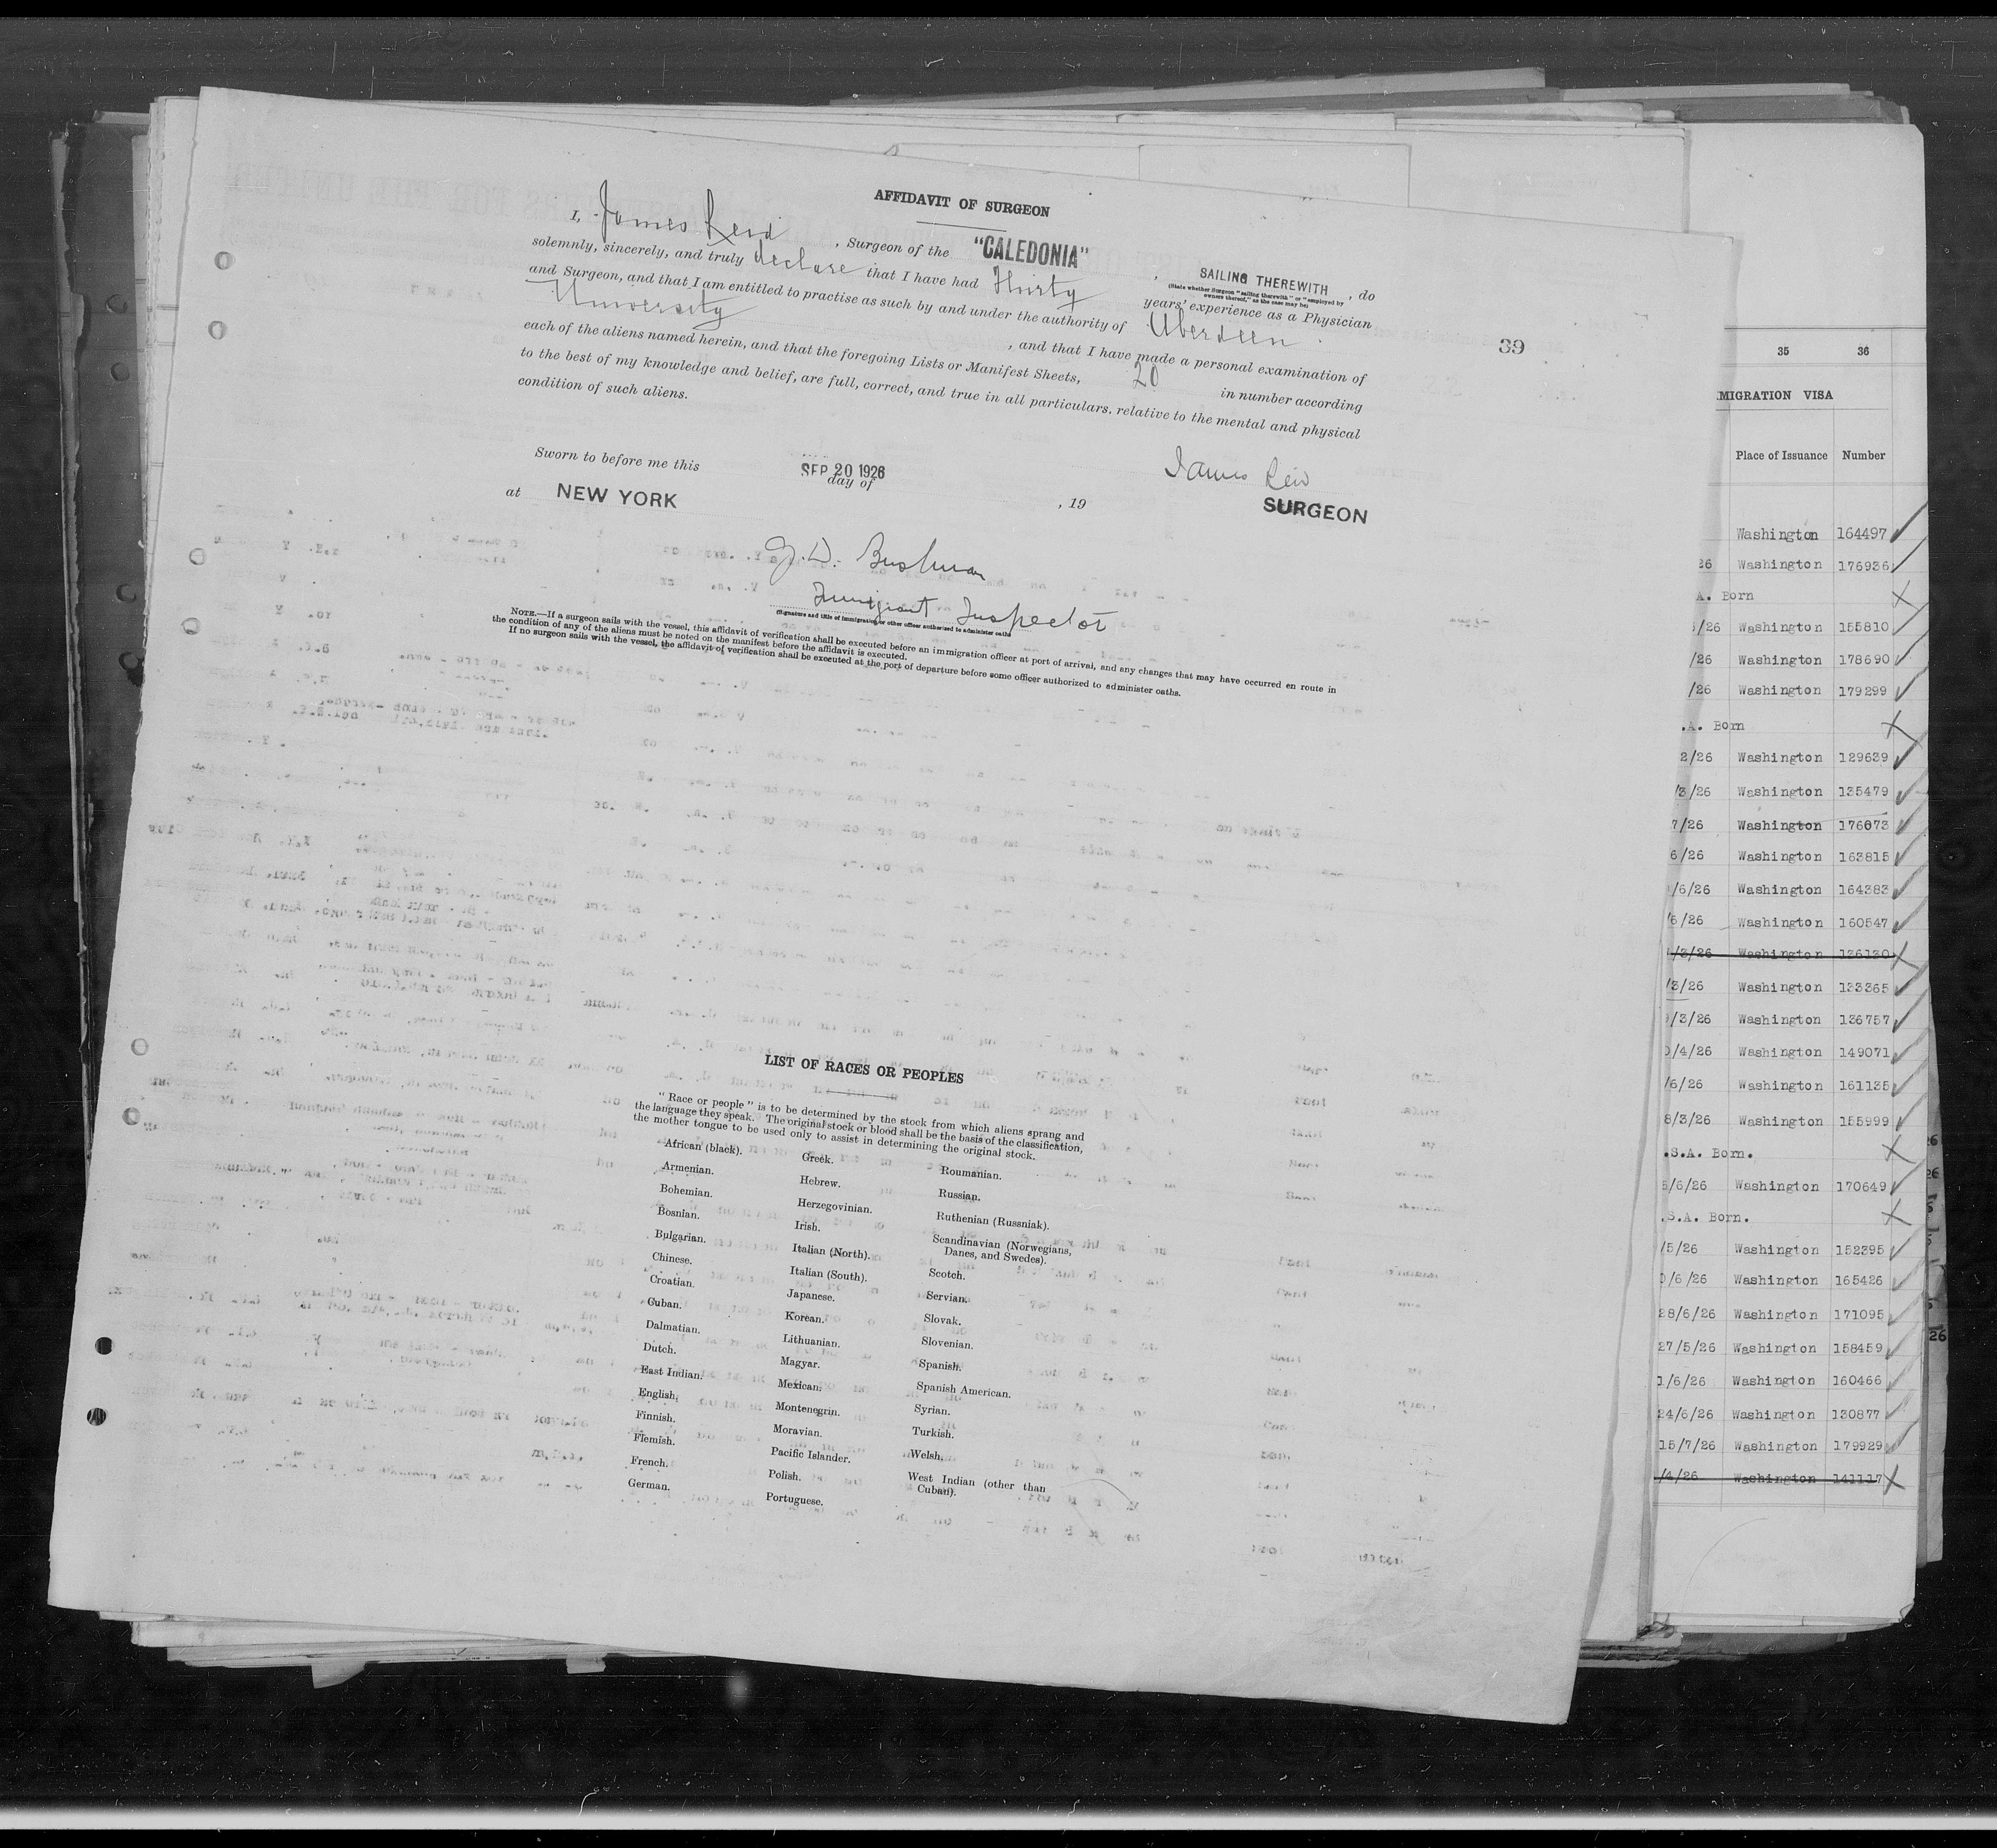 AFFIDAVIT OF SURGEON
I, James Reid, Surgeon of the "CALEDONIA", SAILING THEREWITH, do
(State whether Surgeon "sailing therewith" or "employed by
owners thereof," as the case may be)
solemnly, sincerely, and truly declare that I have had Thirty years' experience as a Physician
and Surgeon, and that I am entitled to practise as such by and under the authority of Aberdeen
University, and that I have made a personal examination of
each of the aliens named herein, and that the foregoing Lists or Manifest Sheets, 20 in number according
to the best of my knowledge and belief, are full, correct, and true in all particulars, relative to the mental and physical
condition of such aliens.
39
James Reid
SURGEON
Sworn to before me this SEP 20 1926 day of
at NEW YORK , 19
J. D. Bushman
Immigrant Inspector
(Signature and title of immigration or other officer authorized to administer oaths)
NOTE.—If a surgeon sails with the vessel, this affidavit of verification shall be executed before an immigration officer at port of arrival, and any changes that may have occurred en route in
the condition of any of the aliens must be noted on the manifest before the affidavit is executed.
If no surgeon sails with the vessel, the affidavit of verification shall be executed at the port of departure before some officer authorized to administer oaths.
LIST OF RACES OR PEOPLES
"Race or people" is to be determined by the stock from which aliens sprang and
the language they speak. The original stock or blood shall be the basis of the classification,
the mother tongue to be used only to assist in determining the original stock.
African (black).
Armenian.
Bohemian.
Bosnian.
Bulgarian.
Chinese.
Croatian.
Cuban.
Dalmatian.
Dutch.
East Indian.
English.
Finnish.
Flemish.
French.
German.
Greek.
Hebrew.
Herzegovinian.
Irish.
Italian (North).
Italian (South).
Japanese.
Korean.
Lithuanian.
Magyar.
Mexican.
Montenegrin.
Moravian.
Pacific Islander.
Polish.
Portuguese.
Roumanian.
Russian.
Ruthenian (Russniak).
Scandinavian (Norwegians,
Danes, and Swedes).
Scotch.
Servian.
Slovak.
Slovenian.
Spanish.
Spanish American.
Syrian.
Turkish.
Welsh.
West Indian (other than
Cuban).
35 36
MIGRATION VISA
Place of Issuance Number
Washington 164497
26 Washington 176936
A. Born
/26 Washington 155810
/26 Washington 178690
/26 Washington 179299
.A. Born
2/26 Washington 129639
/3/26 Washington 135479
7/26 Washington 176073
6/26 Washington 163815
/6/26 Washington 164383
/6/26 Washington 160547
/3/26 Washington 136130
/3/26 Washington 133365
/3/26 Washington 136757
/4/26 Washington 149071
/6/26 Washington 161135
8/3/26 Washington 155999
.S.A. Born.
/6/26 Washington 170649
.S.A. Born.
/5/26 Washington 152395
/6/26 Washington 165426
28/6/26 Washington 171095
27/5/26 Washington 158459
1/6/26 Washington 160466
24/6/26 Washington 130877
15/7/26 Washington 179929
/4/26 Washington 141117